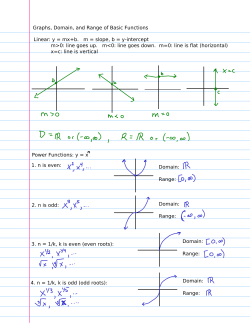 Graphs, Domain, and Range of Basic Functions
Linear: y = mx+b. m = slope, b = y-intercept
m>0: line goes up. m<0: line goes down. m=0: line is flat (horizontal)
x=c: line is vertical
b
b
b
x=c
c
m>0
m<0
m=0
D = ℝ or (-∞,∞), R = ℝ or (-∞,∞)
Power Functions: y = xⁿ
1. n is even: x², x⁴, ...
Domain: ℝ
Range: [0,∞)
2. n is odd: x³, x⁵, ...
Domain: ℝ
Range: (-∞,∞)
3. n = 1/k, k is even (even roots):
Domain: [0,∞)
x^1/2, x^1/4, ...
Range: [0,∞)
√x, ∜x, ...
4. n = 1/k, k is odd (odd roots):
Domain: ℝ
x^1/3, x^1/5, ...
Range: ℝ
∛x, ⁵√x, ...